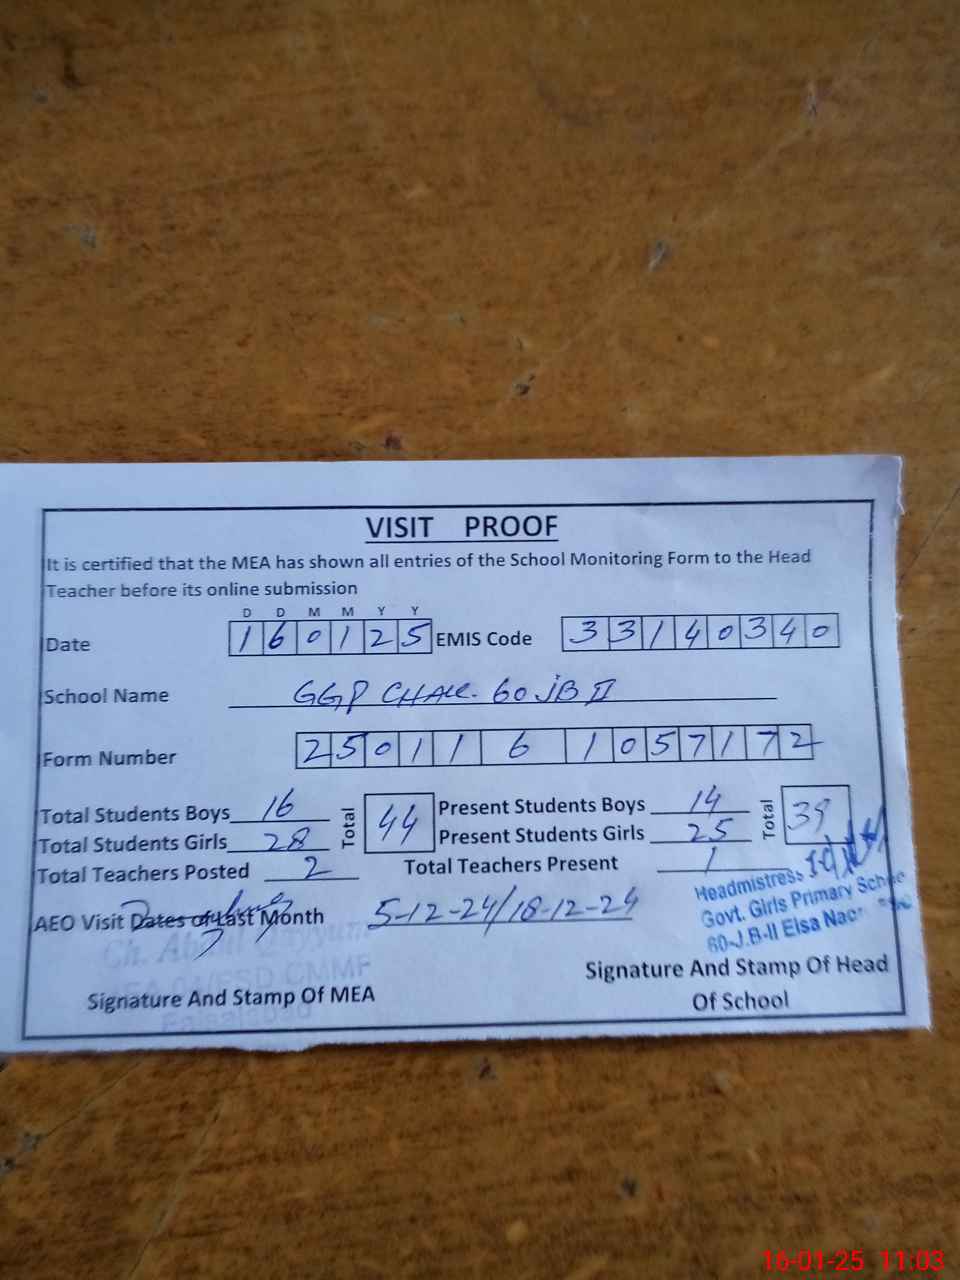 VISIT PROOF
It is certified that the MEA has shown all entries of the School Monitoring Form to the Head
Teacher before its online submission
D D M M Y Y
Date 1 6 0 1 2 5 EMIS Code 3 3 1 4 0 3 4 0
School Name GGP CHAK. 60 JB II
Form Number 2 5 0 1 1 6 1 0 5 7 1 7 2
Total Students Boys 16 Total 44 Present Students Boys 14 Total 39
Total Students Girls 28 Present Students Girls 25
Total Teachers Posted 2 Total Teachers Present 1
Headmistress
Govt. Girls Primary
60-J.B-II
AEO Visit Dates of Last Month 5-12-24/18-12-24
Ch.
Faisalabad
Signature And Stamp Of MEA
Signature And Stamp Of Head
Of School
16-01-25 11:03